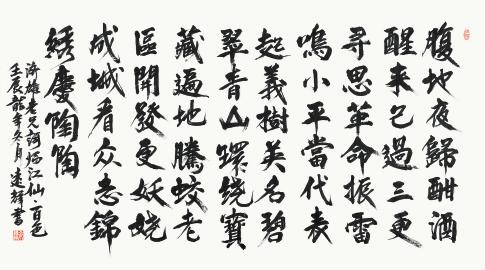 腹地夜歸酣酒
醒来已過三更
尋思革命振雷
鳴小平當代表
起義樹英名碧
翠青山環繞寶
藏遍地騰蛟老
區開發更妖娆
成城看众志錦
綉慶陶陶
濟雄老兄詞临江仙·百色
壬辰龍年冬月書